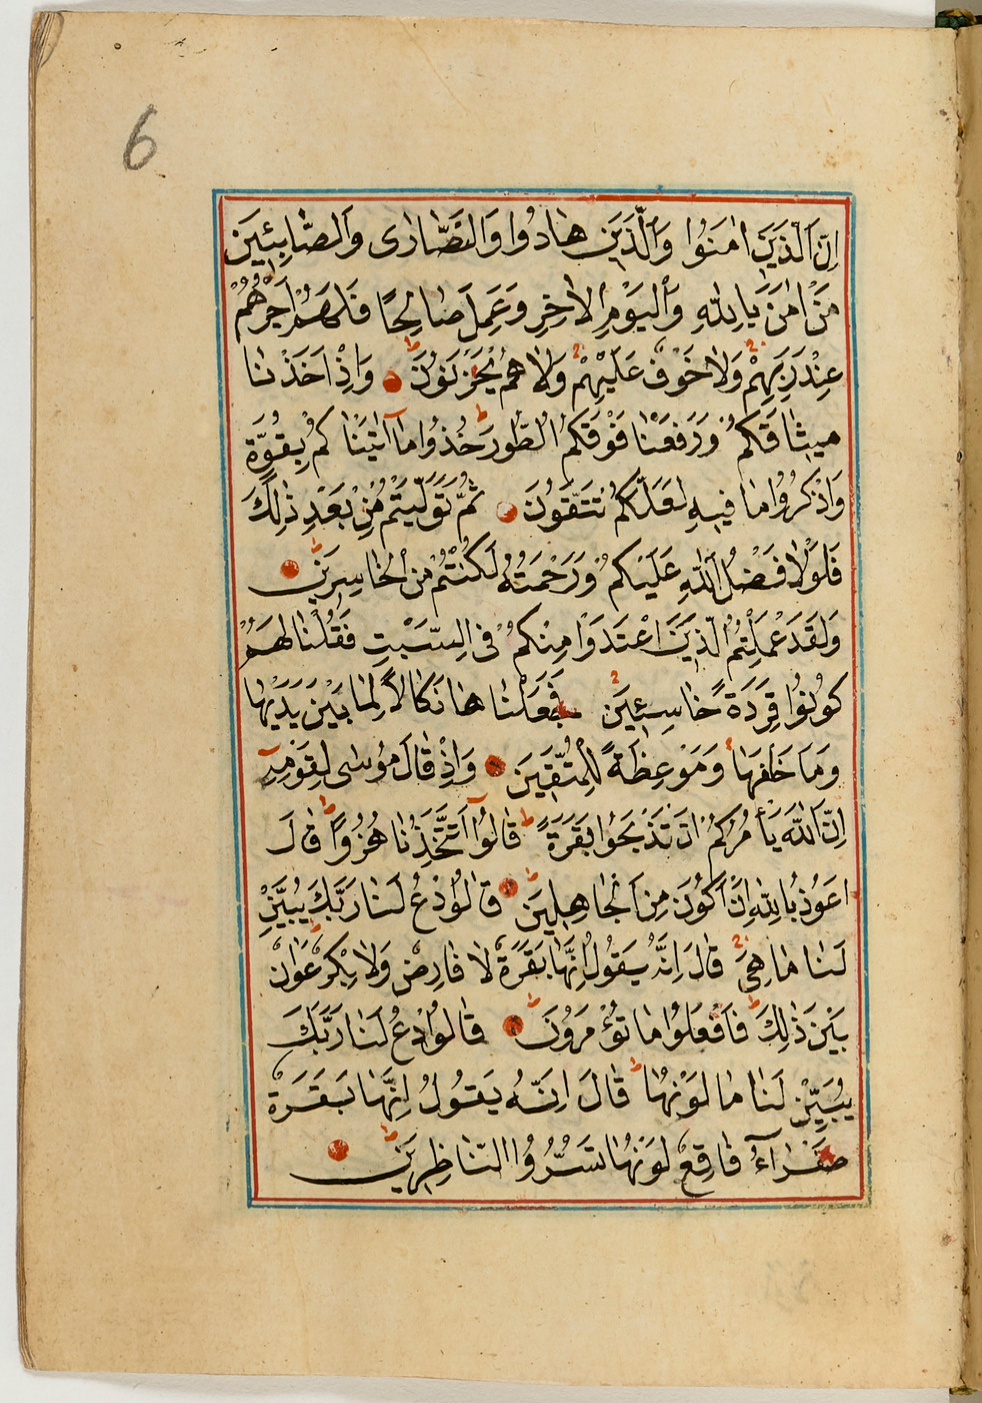 6
اِنَّ الَّذَيِنَ اٰمَنُوا وَالَّذَيِنَ هٰادُوا وَالنَّصٰارٰى وَالصّٰابِئِينَ
مَنْ اٰمَنَ بِاللّٰهِ وَالْيَوْمِ الْاٰخِرِ وَعَمِلَ صٰالِحًا فَلَهُمْ اَجْرُهُمْ
عِنْدَ رَبِهِمْ وَلاٰ خَوْفٌ عَلَيْهِمْ وَلاٰ هُمْ يَحْزَنُونَ وَاِذْ اَخَذْنٰا
مِيثٰاقَكُمْ وَرَفَعْنٰا فَوْقَكُمُ الطُّورَ خُذُوا مٰا اٰتَيْنٰا كُمْ بِقُوَّةٍ
وَاذْكُرُوا مٰا فِيهِ لَعَلَّكُمْ تَتَّقُونَ ثُمَّ تَوَلَّيْتُمْ مِنْ بَعْدِ ذٰلِكَ
فَلَوْلاٰ فَضْلُ اللّٰهِ عَلَيْكُمْ وَرَحْمَتُهُ لَكُنْتُمْ مِنَ الْخٰاسِرِينَ
وَلَقَدْ عَمِلْتُمُ الَّذِينَ اعْتَدَوْا مِنْكُمْ فِى السَّبْتِ فَقُلْنٰا لَهُمْ
كُونُوا قِرَدَةً خٰاسِئِينَ فَجَعَلْنٰا هٰا نَكٰالاً لِمٰا بَيْنَ يَدَيْهٰا
وَمٰا خَلْفَهٰا وَمَوْعِظَةً لِلْمُتَّقِينَ وَاِذْ قٰالَ مُوسٰى لِقَوْمِهِ
اِنَّ اللّٰهَ يَأْمُرُكُمْ اَنْ تَذْبَحُوا بَقَرَةً قٰالُوا اَتَتَّخِذُنٰا هُزُوًا قٰالَ
اَعُوذُ بِاللّٰهِ اَنْ اَكُونَ مِنَ الْجٰاهِلِينَ قٰالُوا ادْعُ لَنٰا رَبَّكَ يُبَيِّنْ
لَنٰا مٰا هِىَ قٰالَ اِنَّهُ يَقُولُ اِنَّهٰا بَقَرَةٌ لاٰ فٰارِضٌ وَلاٰ بِكْرٌ عَوٰانٌ
بَيْنَ ذٰلِكَ فَافْعَلُوا مٰا تُؤْمَرُونَ قٰالُوا ادْعُ لَنٰا رَبَّكَ
يُبَيِّنْ لَنٰا مٰا لَوْنُهٰا قٰالَ اِنَّهُ يَقُولُ اِنَّهٰا بَقَرَةٌ
صَفْرٰآءُ فٰاقِعٌ لَوْنُهٰا تَسُرُّوُا النّٰاظِرِينَ